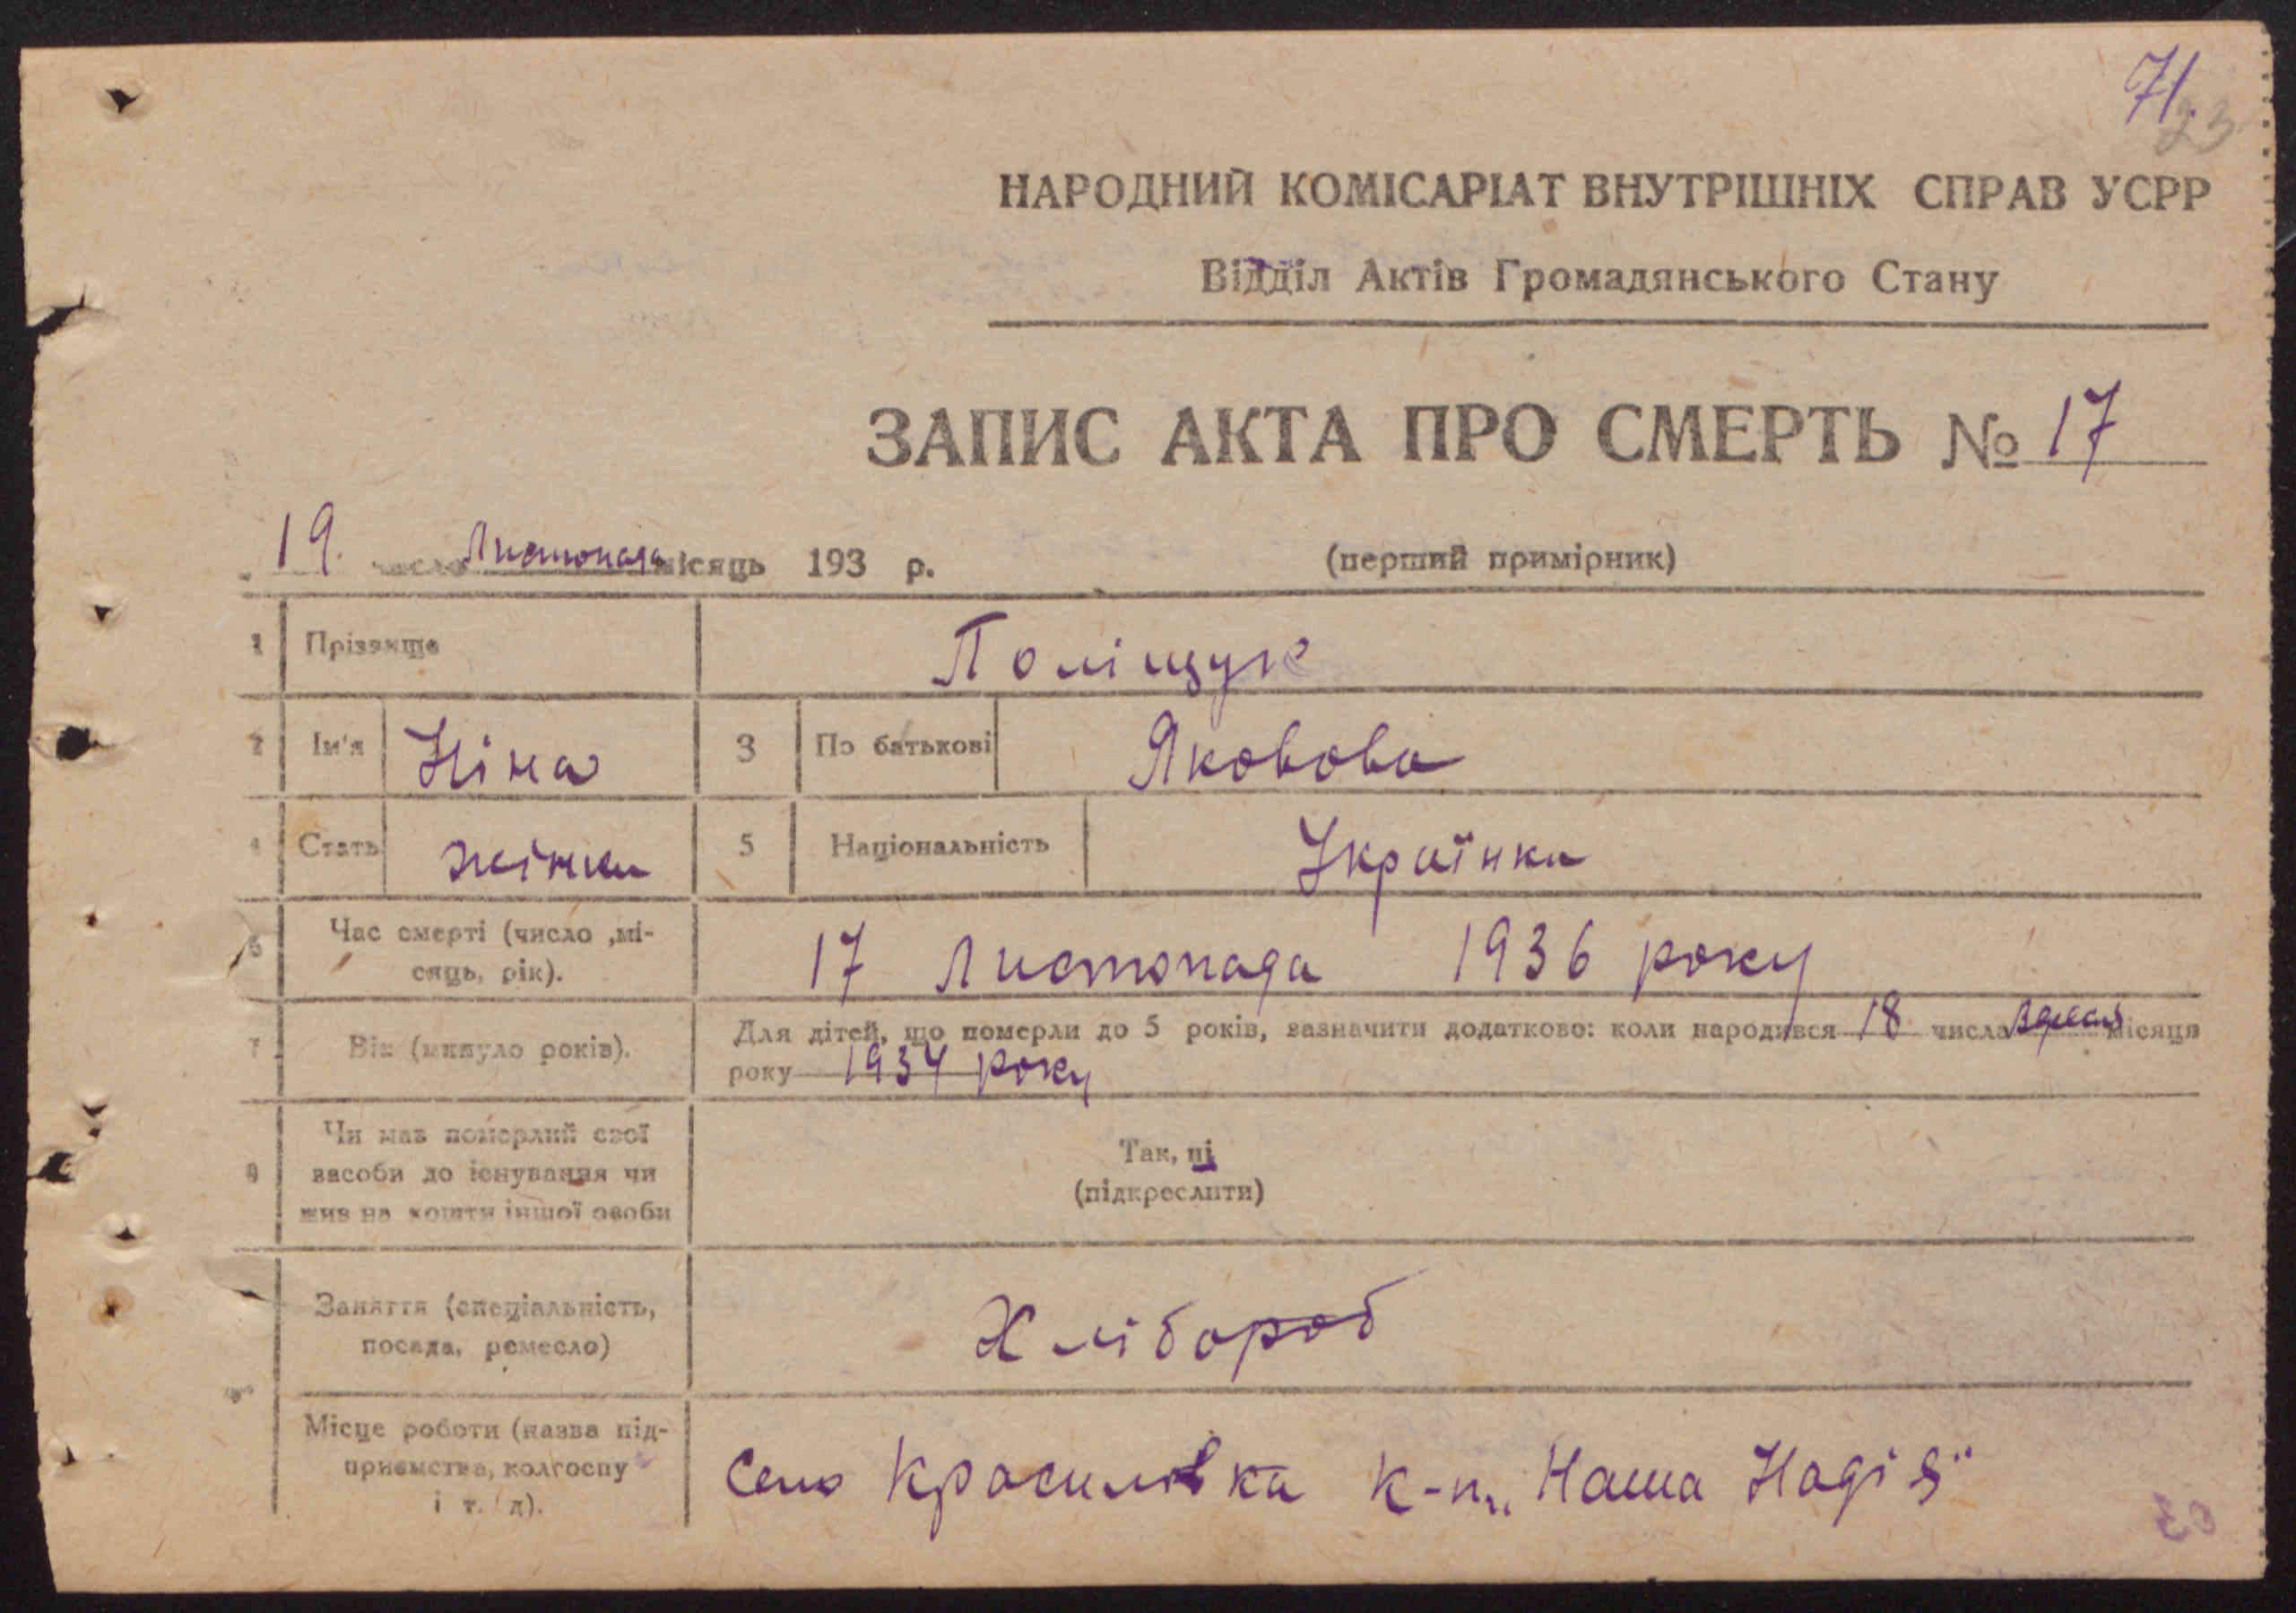 71.
23
НАРОДНИЙ КОМІСАРІАТ ВНУТРІШНІХ СПРАВ УСРР
Відділ Актів Громадянського Стану
ЗАПИС АКТА ПРО СМЕРТЬ № 17
19. число Листопада місяць 193 р.
(перший примірник)
1 Прізвище Поліщук
2 Ім'я Ніна 3 По батькові Яковова
4 Стать жінка 5 Національність Українка
6 Час смерті (число ,мі-
сяць, рік). 17 Листопада 1936 року
7 Вік (минуло років). Для дітей, що померли до 5 років, зазначити додатково: коли народився 18 числа місяця
року 1934 року
8 Чи мав померлий свої
засоби до існування чи
жив на кошти іншої особи
Так, ні
(підкреслити)
Заняття (спеціальність,
посада, ремесло) Хлібороб
Місце роботи (назва під-
приємства, колгоспу
і т. д).
Село Красилівка к-п „Наша Надія"